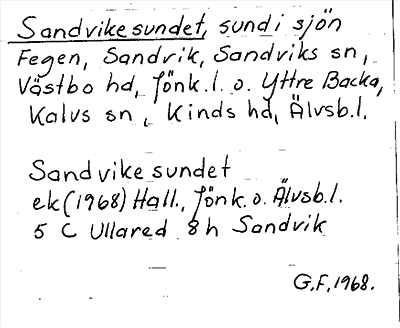 Sandvikesundet, sund i sjön
Fegen, Sandvik, Sandviks sn,
Västbo hd, Jönk.l. o. Yttre Backa,
Kalvs sn, Kinds hd, Älvsb.l.
Sandvikesundet
ek (1968) Hall., Jönk. o. Älvsb.l.
5 C Ullared 8 h Sandvik
G.F, 1968.